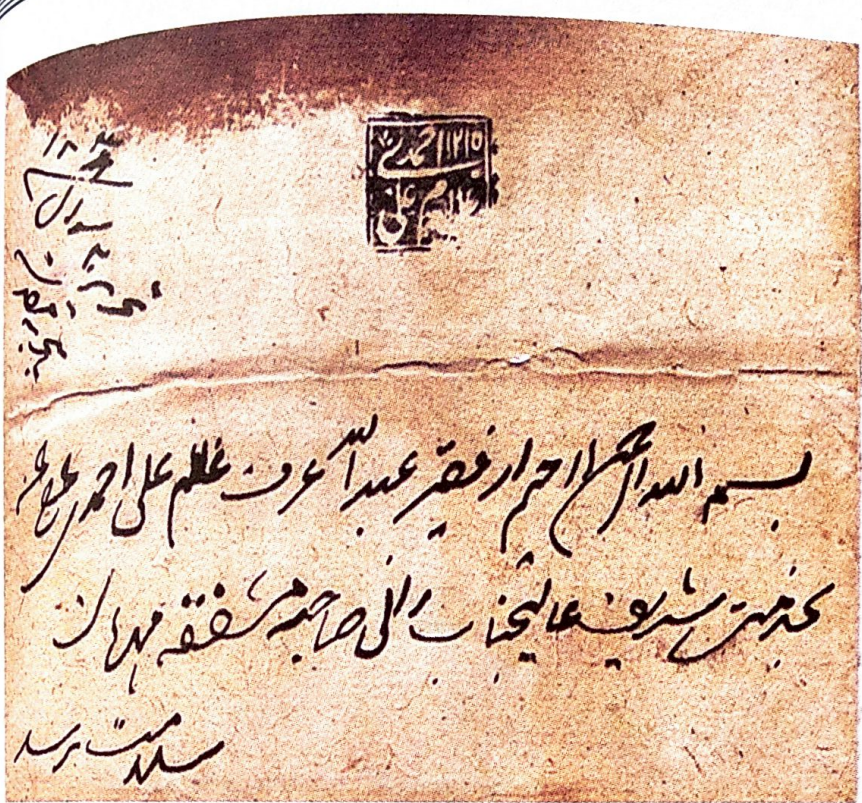 ۱۲۱۵ احمدی
غلام علی
بسم الله الرحمن الرحیم از فقیر عبد الله عرف غلام علی احمدی عفی عنه
بخدمت شریف عالیجناب رانی صاحبه مشفقه مهربان
سلامت برسد